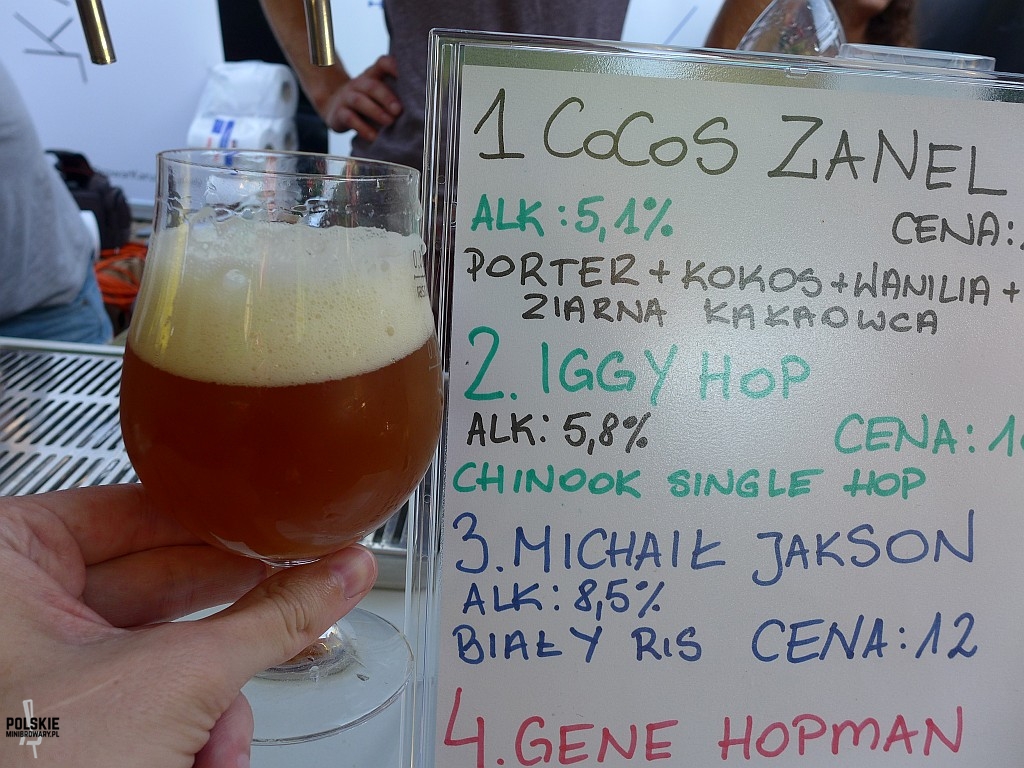 1 COCOS ZANEL
ALK: 5,1%
CENA:
PORTER + KOKOS + WANILIA +
ZIARNA KAKAOWCA
2. IGGY HOP
ALK: 5,8%
CENA:
CHINOOK SINGLE HOP
3. MICHAIŁ JAKSON
ALK: 8,5%
BIAŁY RIS CENA: 12
4. GENE HOPMAN
POLSKIE
MINIBROWARY.PL